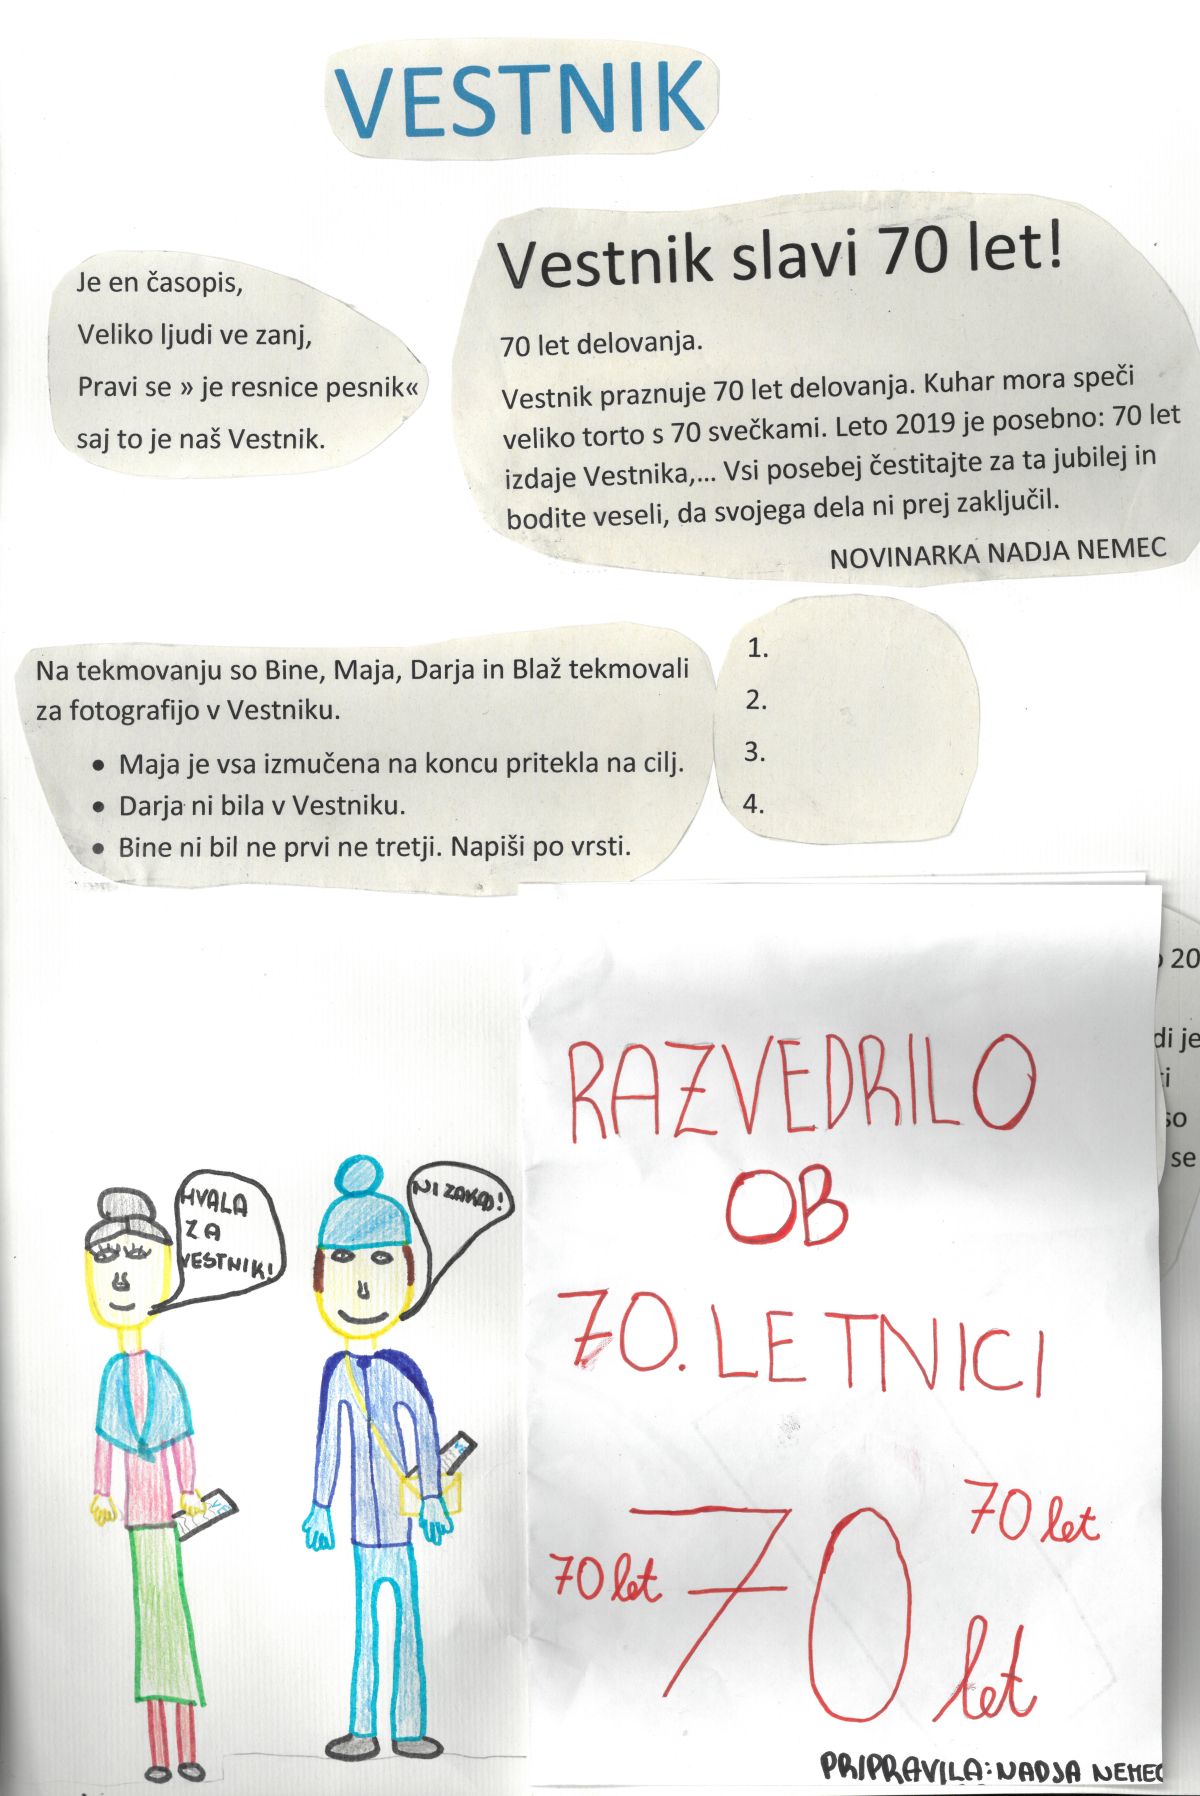 VESTNIK
Je en časopis,
Veliko ljudi ve zanj,
Pravi se » je resnice pesnik«
saj to je naš Vestnik.
Vestnik slavi 70 let!
70 let delovanja.
Vestnik praznuje 70 let delovanja. Kuhar mora speči
veliko torto s 70 svečkami. Leto 2019 je posebno: 70 let
izdaje Vestnika,... Vsi posebej čestitajte za ta jubilej in
bodite veseli, da svojega dela ni prej zaključil.
NOVINARKA NADJA NEMEC
Na tekmovanju so Bine, Maja, Darja in Blaž tekmovali
za fotografijo v Vestniku.
• Maja je vsa izmučena na koncu pritekla na cilj.
• Darja ni bila v Vestniku.
• Bine ni bil ne prvi ne tretji. Napiši po vrsti.
1.
2.
3.
4.
20
di je
so
se
HVALA
ZA
VESTNIK!
NI ZAKAJ!
VE
RAZVEDRILO
OB
70. LETNICI
70 let
70 let
70 let
PRIPRAVILA: NADJA NEMEC